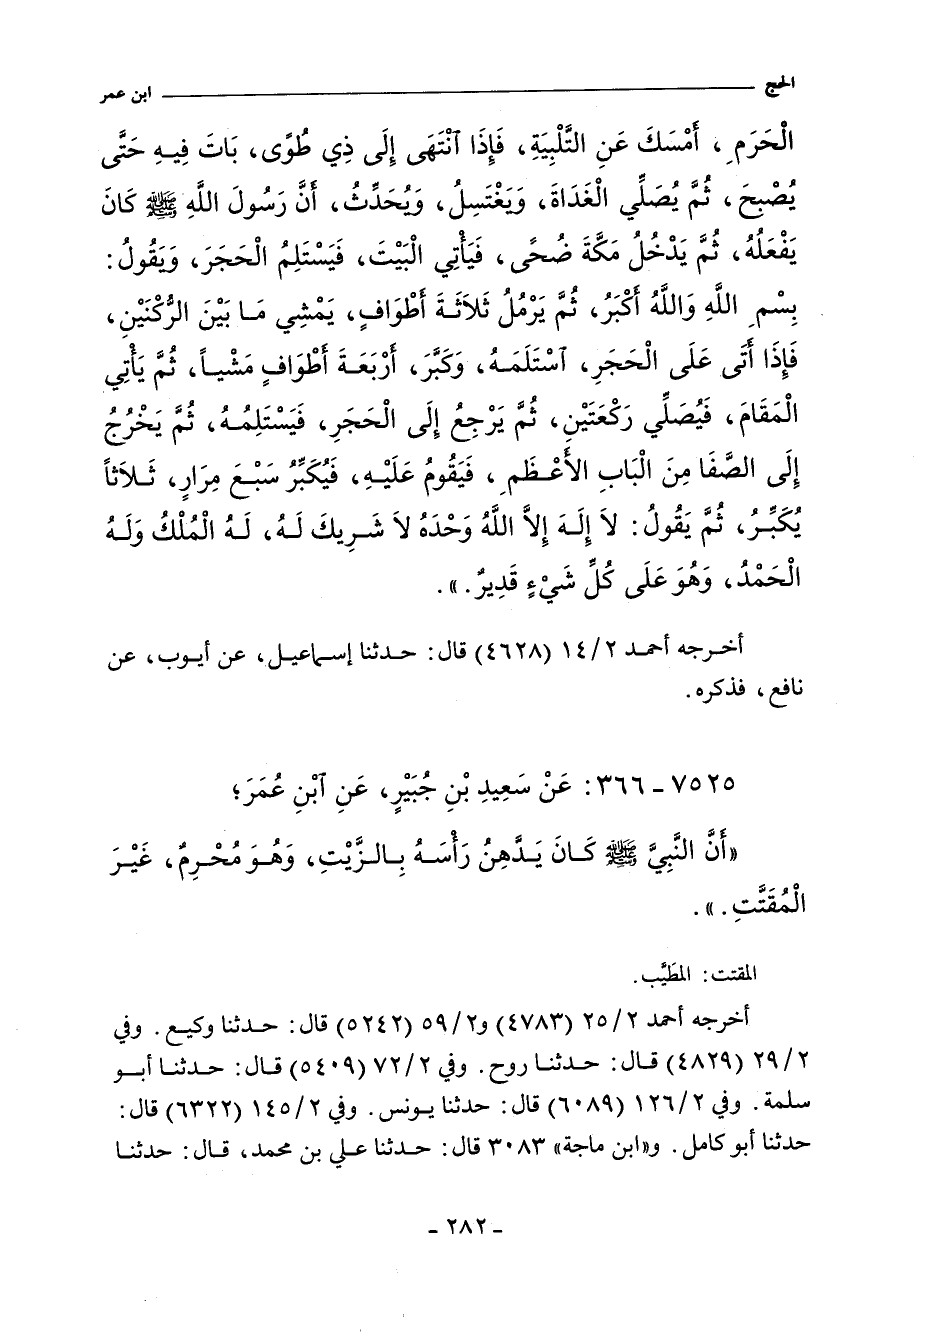 الحج ابن عمر
الْحَرَمِ ، أَمْسَكَ عَنِ التَّلْبِيَةِ، فَإِذَا ٱنْتَهَى إِلَى ذِي طُوًى، بَاتَ فِيهِ حَتَّى
يُصْبِحَ، ثُمَّ يُصَلِّي الْغَدَاةَ، وَيَغْتَسِلُ، وَيُحَدِّثُ، أَنَّ رَسُولَ اللَّهِ ﷺ كَانَ
يَفْعَلُهُ، ثُمَّ يَدْخُلُ مَكَّةَ ضُحًى، فَيَأْتِي الْبَيْتَ، فَيَسْتَلِمُ الْحَجَرَ، وَيَقُولُ:
بِسْمِ اللَّهِ وَاللَّهُ أَكْبَرُ، ثُمَّ يَرْمُلُ ثَلَاثَةَ أَطْوَافٍ، يَمْشِي مَا بَيْنَ الرُّكْنَيْنِ،
فَإِذَا أَتَى عَلَى الْحَجَرِ، ٱسْتَلَمَهُ، وَكَبَّرَ، أَرْبَعَةَ أَطْوَافٍ مَشْياً، ثُمَّ يَأْتِي
الْمَقَامَ، فَيُصَلِّي رَكْعَتَيْنِ، ثُمَّ يَرْجِعُ إِلَى الْحَجَرِ، فَيَسْتَلِمُهُ، ثُمَّ يَخْرُجُ
إِلَى الصَّفَا مِنَ الْبَابِ الأَعْظَمِ ، فَيَقُومُ عَلَيْهِ، فَيُكَبِّرُ سَبْعَ مِرَارٍ، ثَلَاثاً
يُكَبِّرُ، ثُمَّ يَقُولُ: لاَ إِلَهَ إِلاَّ اللَّهُ وَحْدَهُ لاَ شَرِيكَ لَهُ، لَهُ الْمُلْكُ وَلَهُ
الْحَمْدُ، وَهُوَ عَلَى كُلِّ شَيْءٍ قَدِيرٌ.».
أخرجه أحمد ١٤/٢ (٤٦٢٨) قال: حدثنا إسماعيل، عن أيوب، عن
نافع، فذكره.
٧٥٢٥ - ٣٦٦: عَنْ سَعِيدِ بْنِ جُبَيْرٍ، عَنِ ٱبْنِ عُمَرَ؛
«أَنَّ النَّبِيَّ ﷺ كَانَ يَدَّهِنُ رَأْسَهُ بِالزَّيْتِ، وَهُوَ مُحْرِمٌ، غَيْرَ
الْمُقَتَّتِ.».
المقتت: المطَيَّب.
أخرجه أحمد ٢٥/٢ (٤٧٨٣) و٥٩/٢ (٥٢٤٢) قال: حدثنا وكيع. وفي
٢٩/٢ (٤٨٢٩) قال: حدثنا روح. وفي ٧٢/٢ (٥٤٠٩) قال: حدثنا أبو
سلمة. وفي ١٢٦/٢ (٦٠٨٩) قال: حدثنا يونس. وفي ١٤٥/٢ (٦٣٢٢) قال:
حدثنا أبو كامل. و«ابن ماجة» ٣٠٨٣ قال: حدثنا علي بن محمد، قال: حدثنا
- ٢٨٢ -